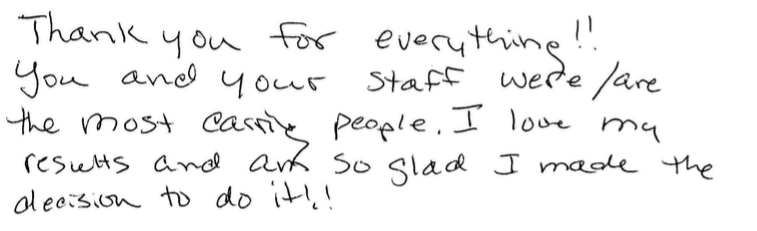 Thank you for everything!!
You and your staff were/are
the most caring people. I love my
results and am so glad I made the
decision to do it!!